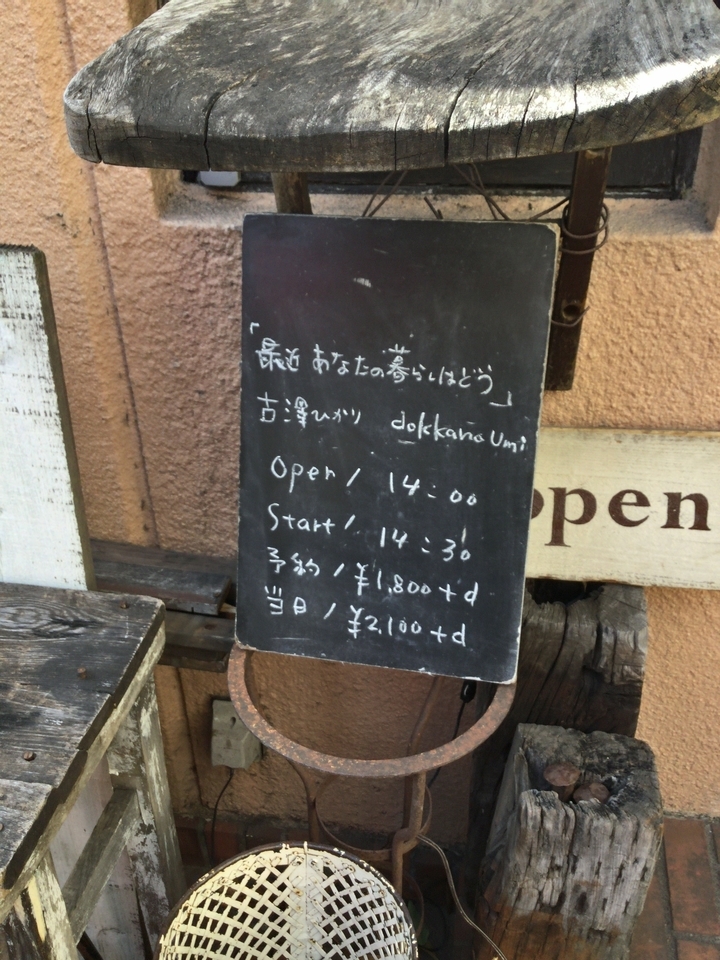 「最近 あなたの暮らしはどう」
古澤ひかり dokkano Umi
Open / 14:00
Start / 14:30
予約 / ¥1,800+d
当日 / ¥2,100+d
open